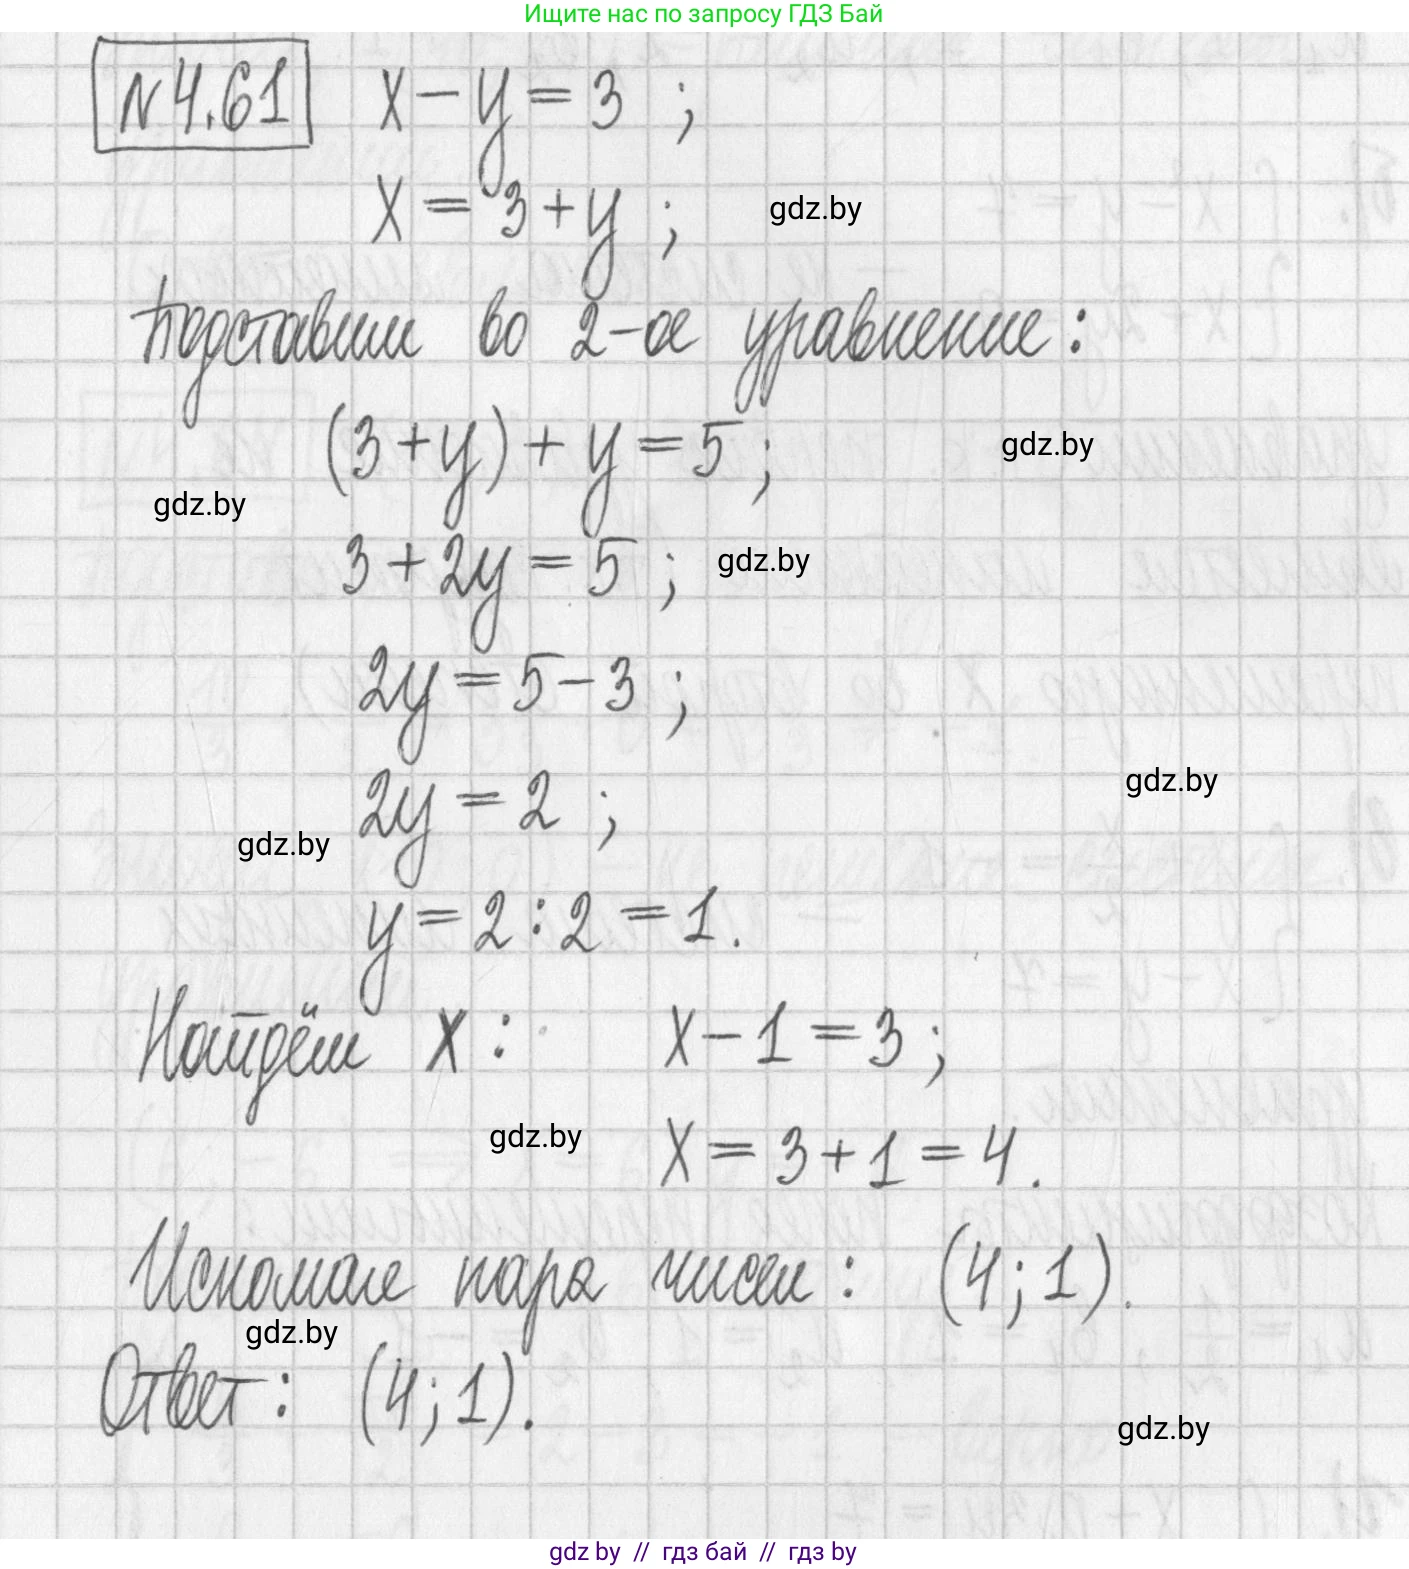 Ищите нас по запросу ГДЗ Бай
№4.61 x - y = 3 ;
x = 3 + y ;
gdz.by
Подставим во 2-ое уравнение:
(3 + y) + y = 5 ;
gdz.by
gdz.by
3 + 2y = 5 ;
gdz.by
2y = 5 - 3 ;
gdz.by
2y = 2 ;
gdz.by
y = 2 : 2 = 1.
Найдём x : x - 1 = 3 ;
gdz.by
x = 3 + 1 = 4.
Искомая пара чисел : (4 ; 1).
gdz.by
Ответ : (4 ; 1).
gdz.by
gdz by // гдз бай // гдз by